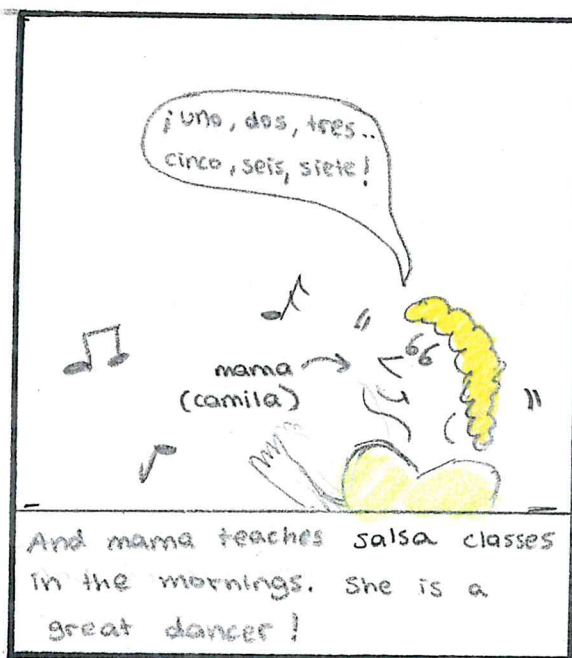 ¡uno, dos, tres..
cinco, seis, siete!
mama
(camila)
And mama teaches salsa classes
in the mornings. She is a
great dancer!